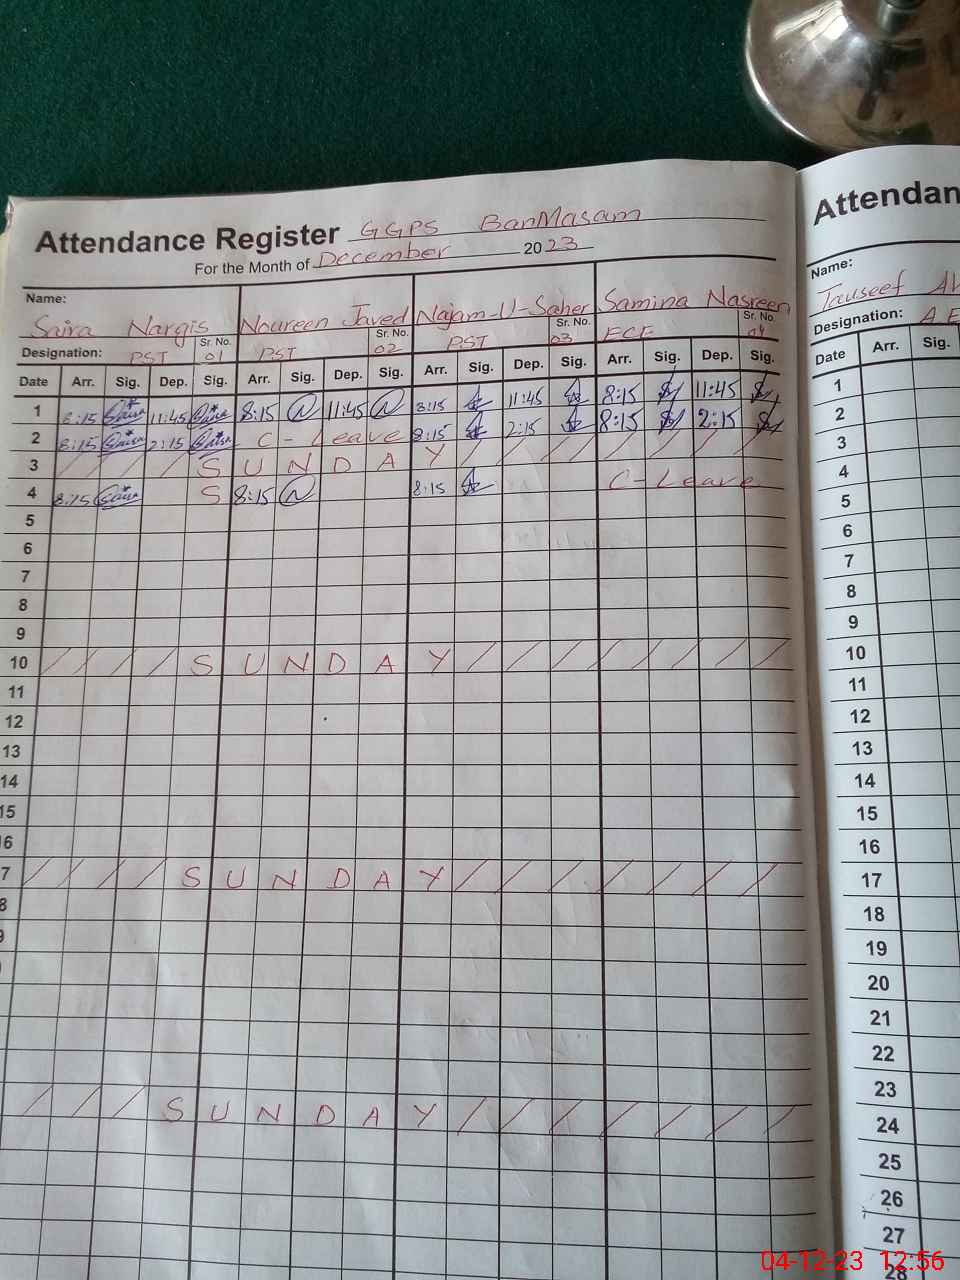 Attendance Register GGPS BanMasam
For the Month of December 2023
Name:
Saira Nargis Noureen Javed Najam-U-Saher Samina Nasreen
Designation: PST Sr. No. 01 PST Sr. No. 02 PST Sr. No. 03 ECE Sr. No. 04
Date Arr. Sig. Dep. Sig. Arr. Sig. Dep. Sig. Arr. Sig. Dep. Sig. Arr. Sig. Dep. Sig.
1 8:15 11:45 8:15 11:45 8:15 11:45 8:15 11:45
2 8:15 2:15 C-Leave 8:15 2:15 8:15 2:15
3 SUNDAY
4 8:15 S 8:15 8:15 C-Leave
5
6
7
8
9
10 SUNDAY
11
12
13
14
15
6
7 SUNDAY
8
9
SUNDAY
Attendan
Name:
Tauseef
Designation: A E
Date Arr. Sig.
1
2
3
4
5
6
7
8
9
10
11
12
13
14
15
16
17
18
19
20
21
22
23
24
25
26
27
28
04-12-23 12:56